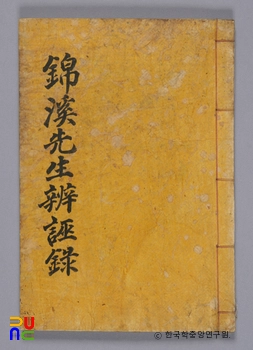 錦溪先生辨誣錄
© 한국학중앙연구원